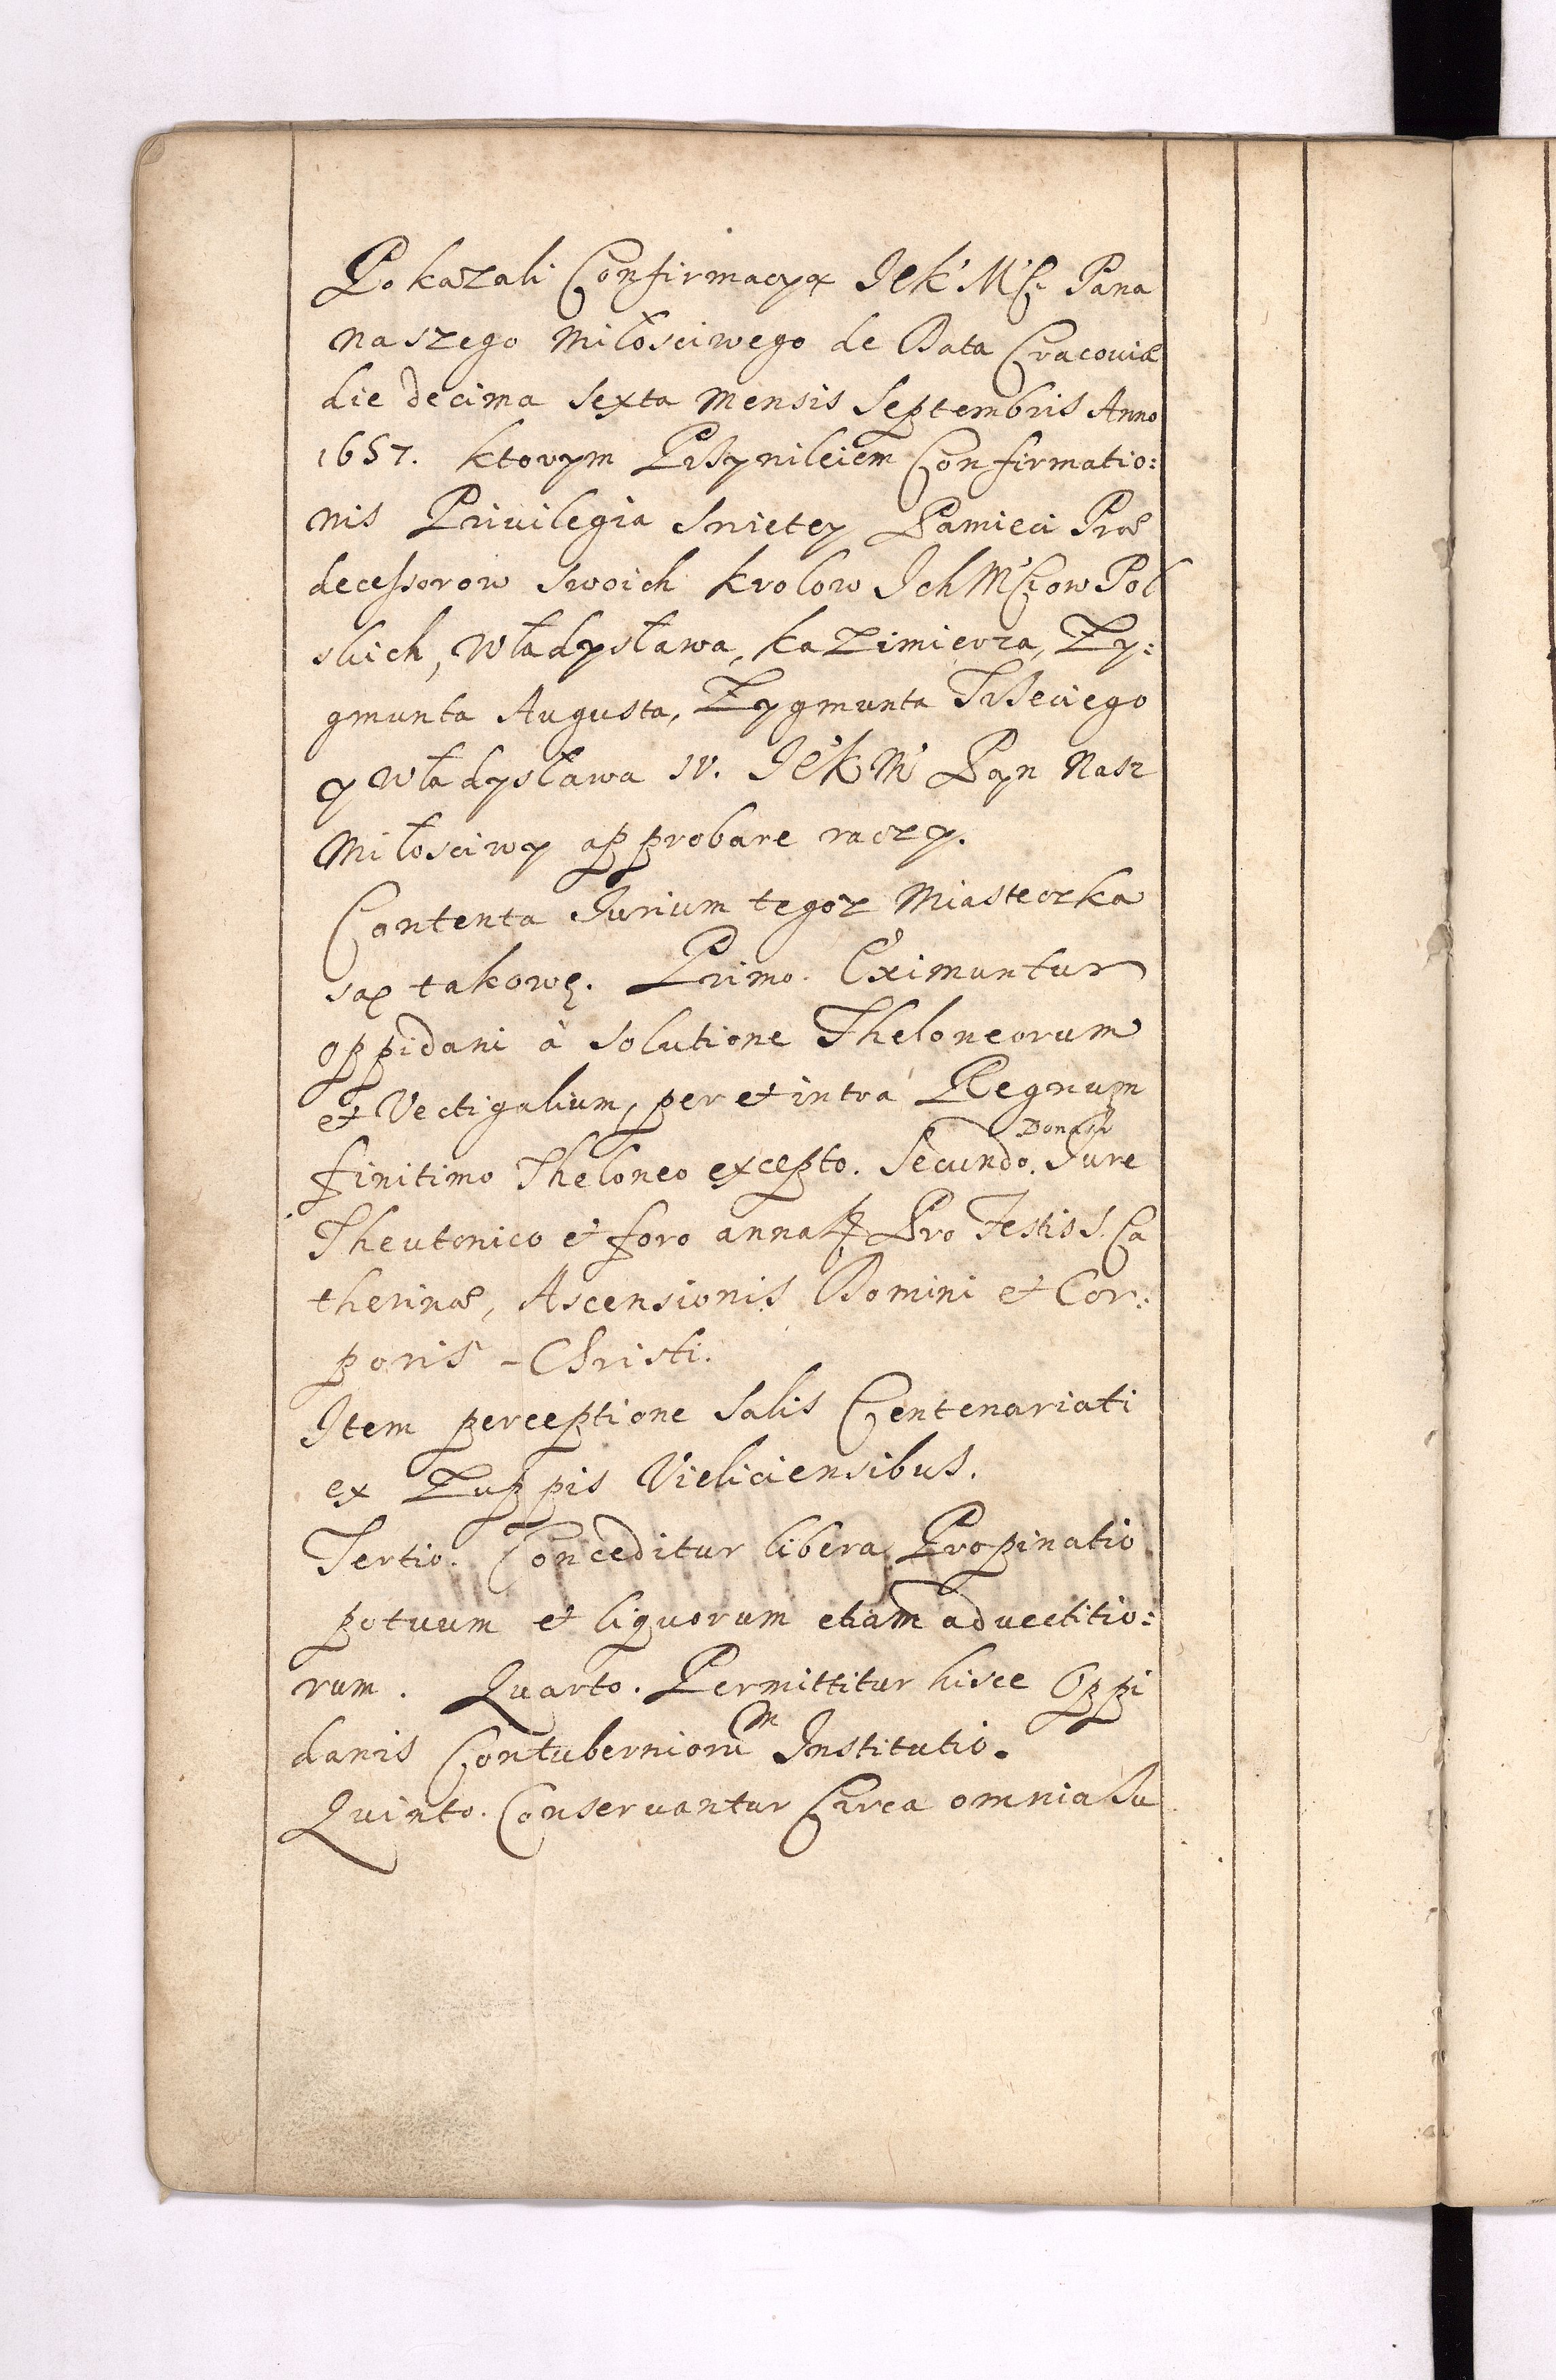 Pokazali Confirmacyą JeK' M'ści Pana
naszego miłosciwego de Data Cracoviæ
die decima sexta mensis Septembris Anno
1657. ktorym Przywileiem Confirmatio:
nis Privilegia swietey Pamieci Præ
decessorow swoich krolow Ich M'ściow Pol
skich, Władysława, kazimierza, Zy:
gmunta Augusta, Zygmunta Trzeciego
y Władysława IV. JeK M' Pan Nasz
Miłosciwy approbare raczy.
Contenta Iurium tegoż Miasteczka
są takowe. Primo. Eximuntur
oppidani à solutione Theloneorum
et Vectigalium, per et intra Regnum
finitimo Theloneo excepto. Secundo. Donantur Iure
Theutonico et foro annali Pro Festis S. Ca
therinæ, Ascensionis Domini et Cor:
poris - Christi.
Item perceptione Salis Centenariati
ex Zuppis Vieliciensibus.
Tertio. Conceditur libera Propinatio
potuum et liquorum etiam advectitio:
rum. Quarto. Permittitur hisce Oppi
danis Contuberniorum Institutio.
Quinto. Conservantur Circa omnia Iu